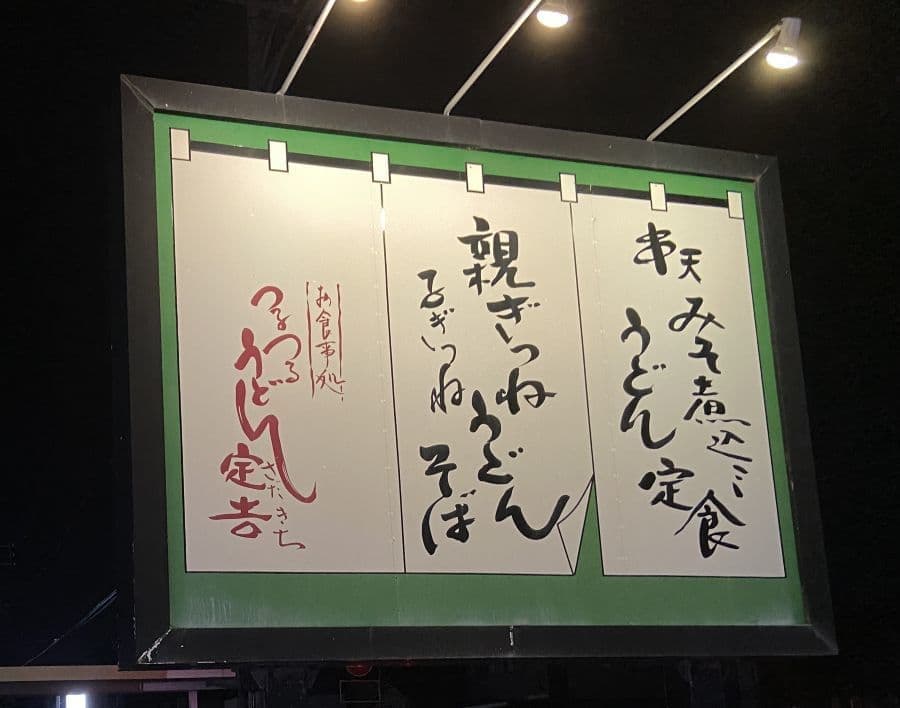 串天
みそ煮込ミ
うどん定食
親ぎつねうどん
子ぎつねそば
お食事処
つるつる
うどん
定吉
さだきち